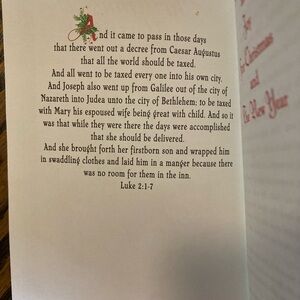 And it came to pass in those days
that there went out a decree from Caesar Augustus
that all the world should be taxed.
And all went to be taxed every one into his own city.
And Joseph also went up from Galilee out of the city of
Nazareth into Judea unto the city of Bethlehem; to be taxed
with Mary his espoused wife being great with child. And so it
was that while they were there the days were accomplished
that she should be delivered.
And she brought forth her firstborn son and wrapped him
in swaddling clothes and laid him in a manger because there
was no room for them in the inn.
Luke 2:1-7
Joy
Christmas
and
The New Year